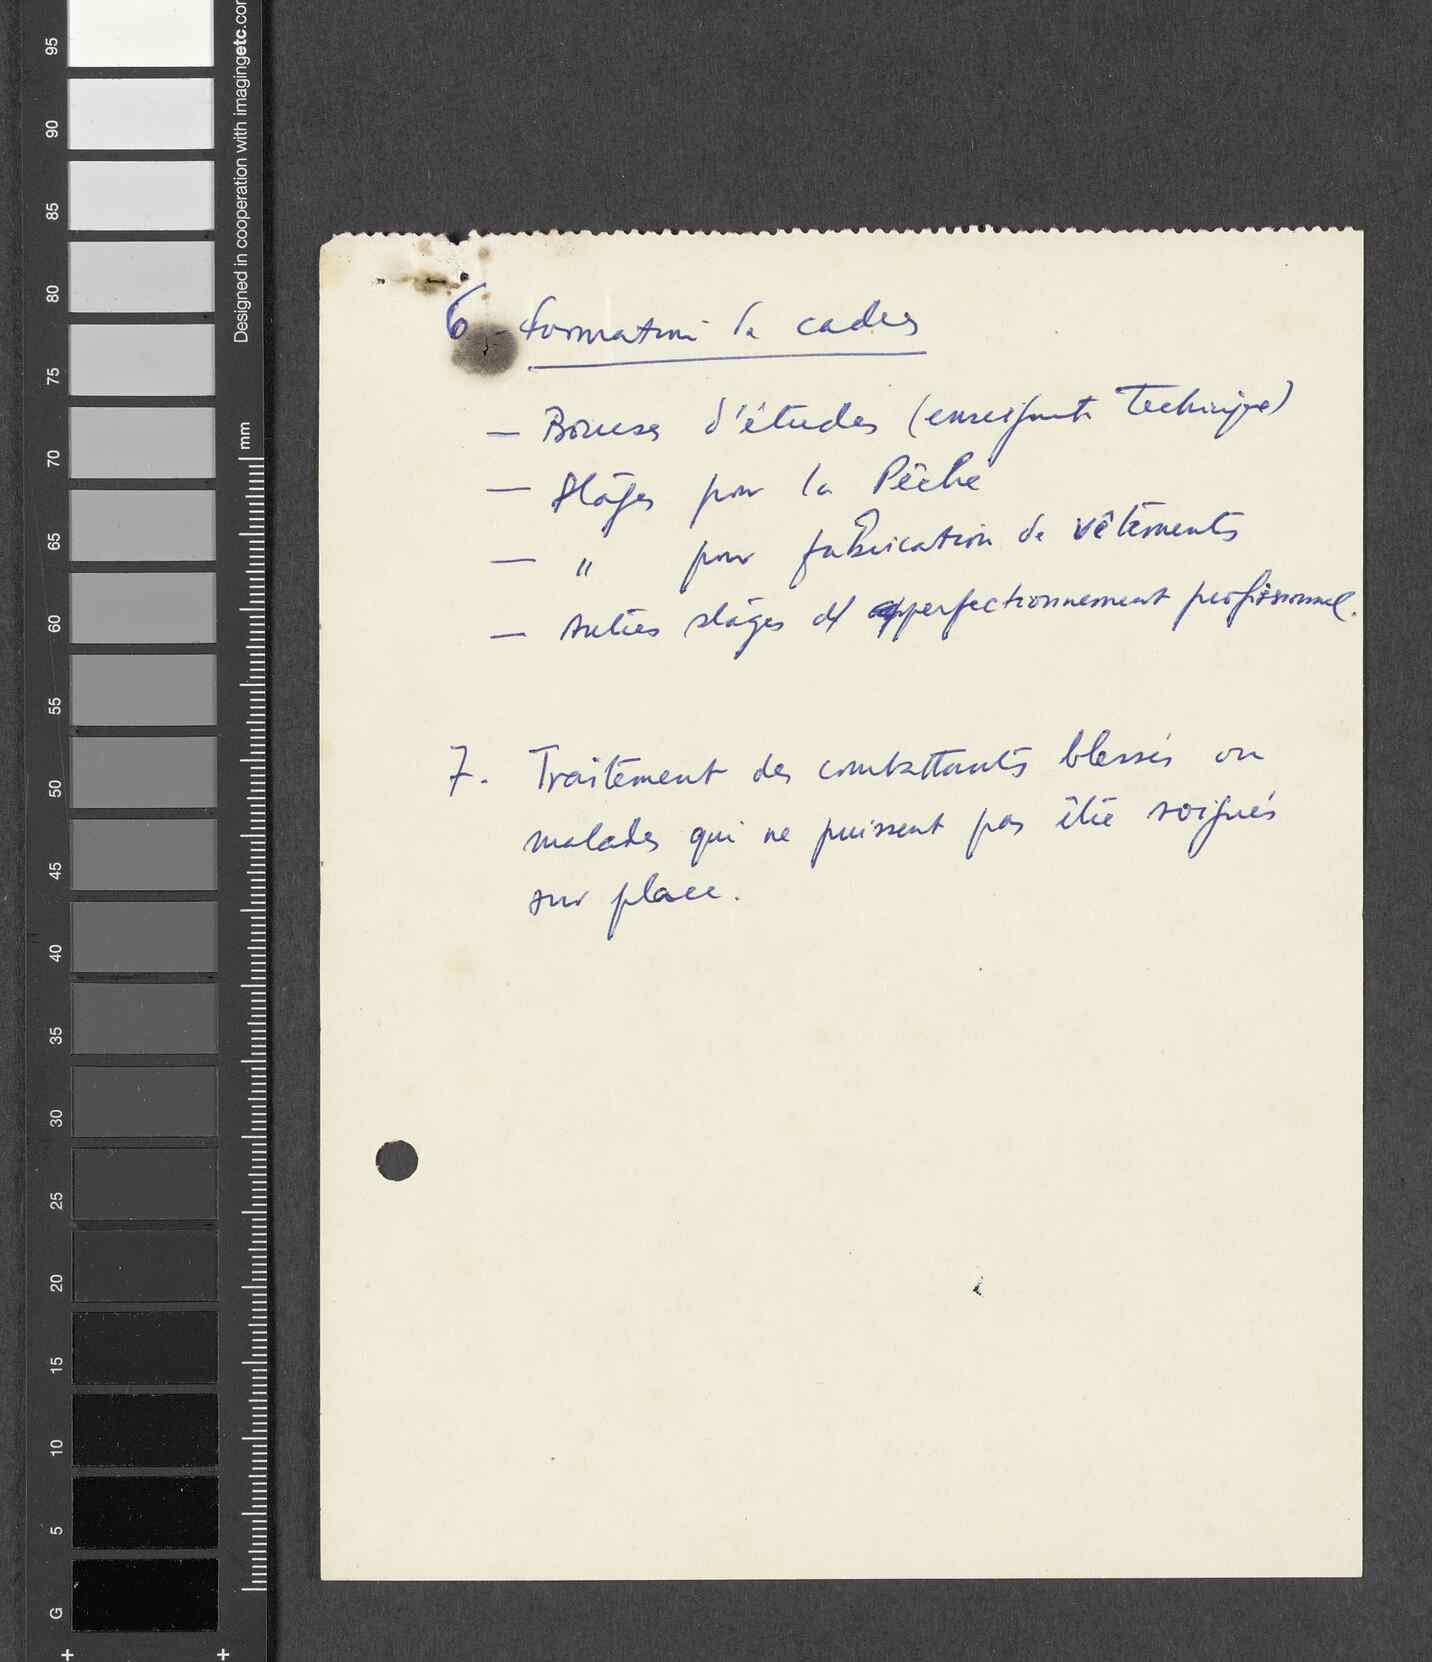 95
90
85
80
75
70
65
60
55
50
45
40
35
30
25
20
15
10
5
G
Designed in cooperation with imagingetc.com
mm
6 - Formation de cades
— Bourses d'études (enseignents Technique)
— Stâges pour la Pêche
— " pour fabrication de vêtements
— Autres stâges d' perfectionnement professionnel.
7. Traitement des combattants blessés ou
malades qui ne puissent pas être soignés
sur place.